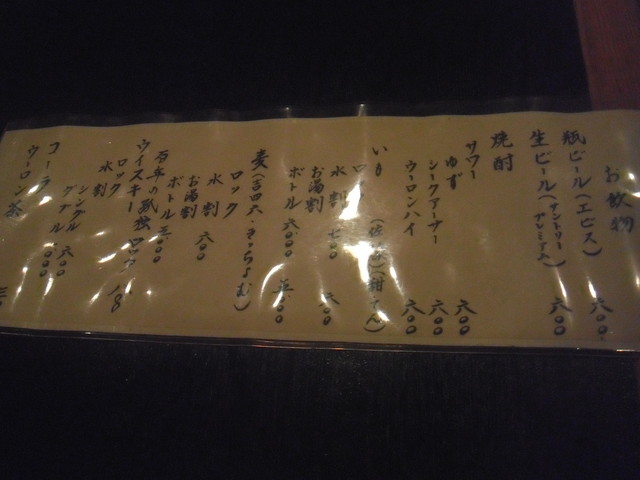 お飲物
瓶ビール（エビス） 六〇〇
生ビール（サントリープレミアム） 六〇〇
焼酎
サワー
ゆず 六〇〇
シークアーサー 六〇〇
ウーロンハイ 六〇〇
いも
水割
お湯割
ボトル 六〇〇〇
麦（吉四六 きっちょむ）
ロック
水割
お湯割 六〇〇
ボトル
百年の孤独 ロック
ウイスキー
ロック
水割
シングル
ダブル
コーラ
ウーロン茶